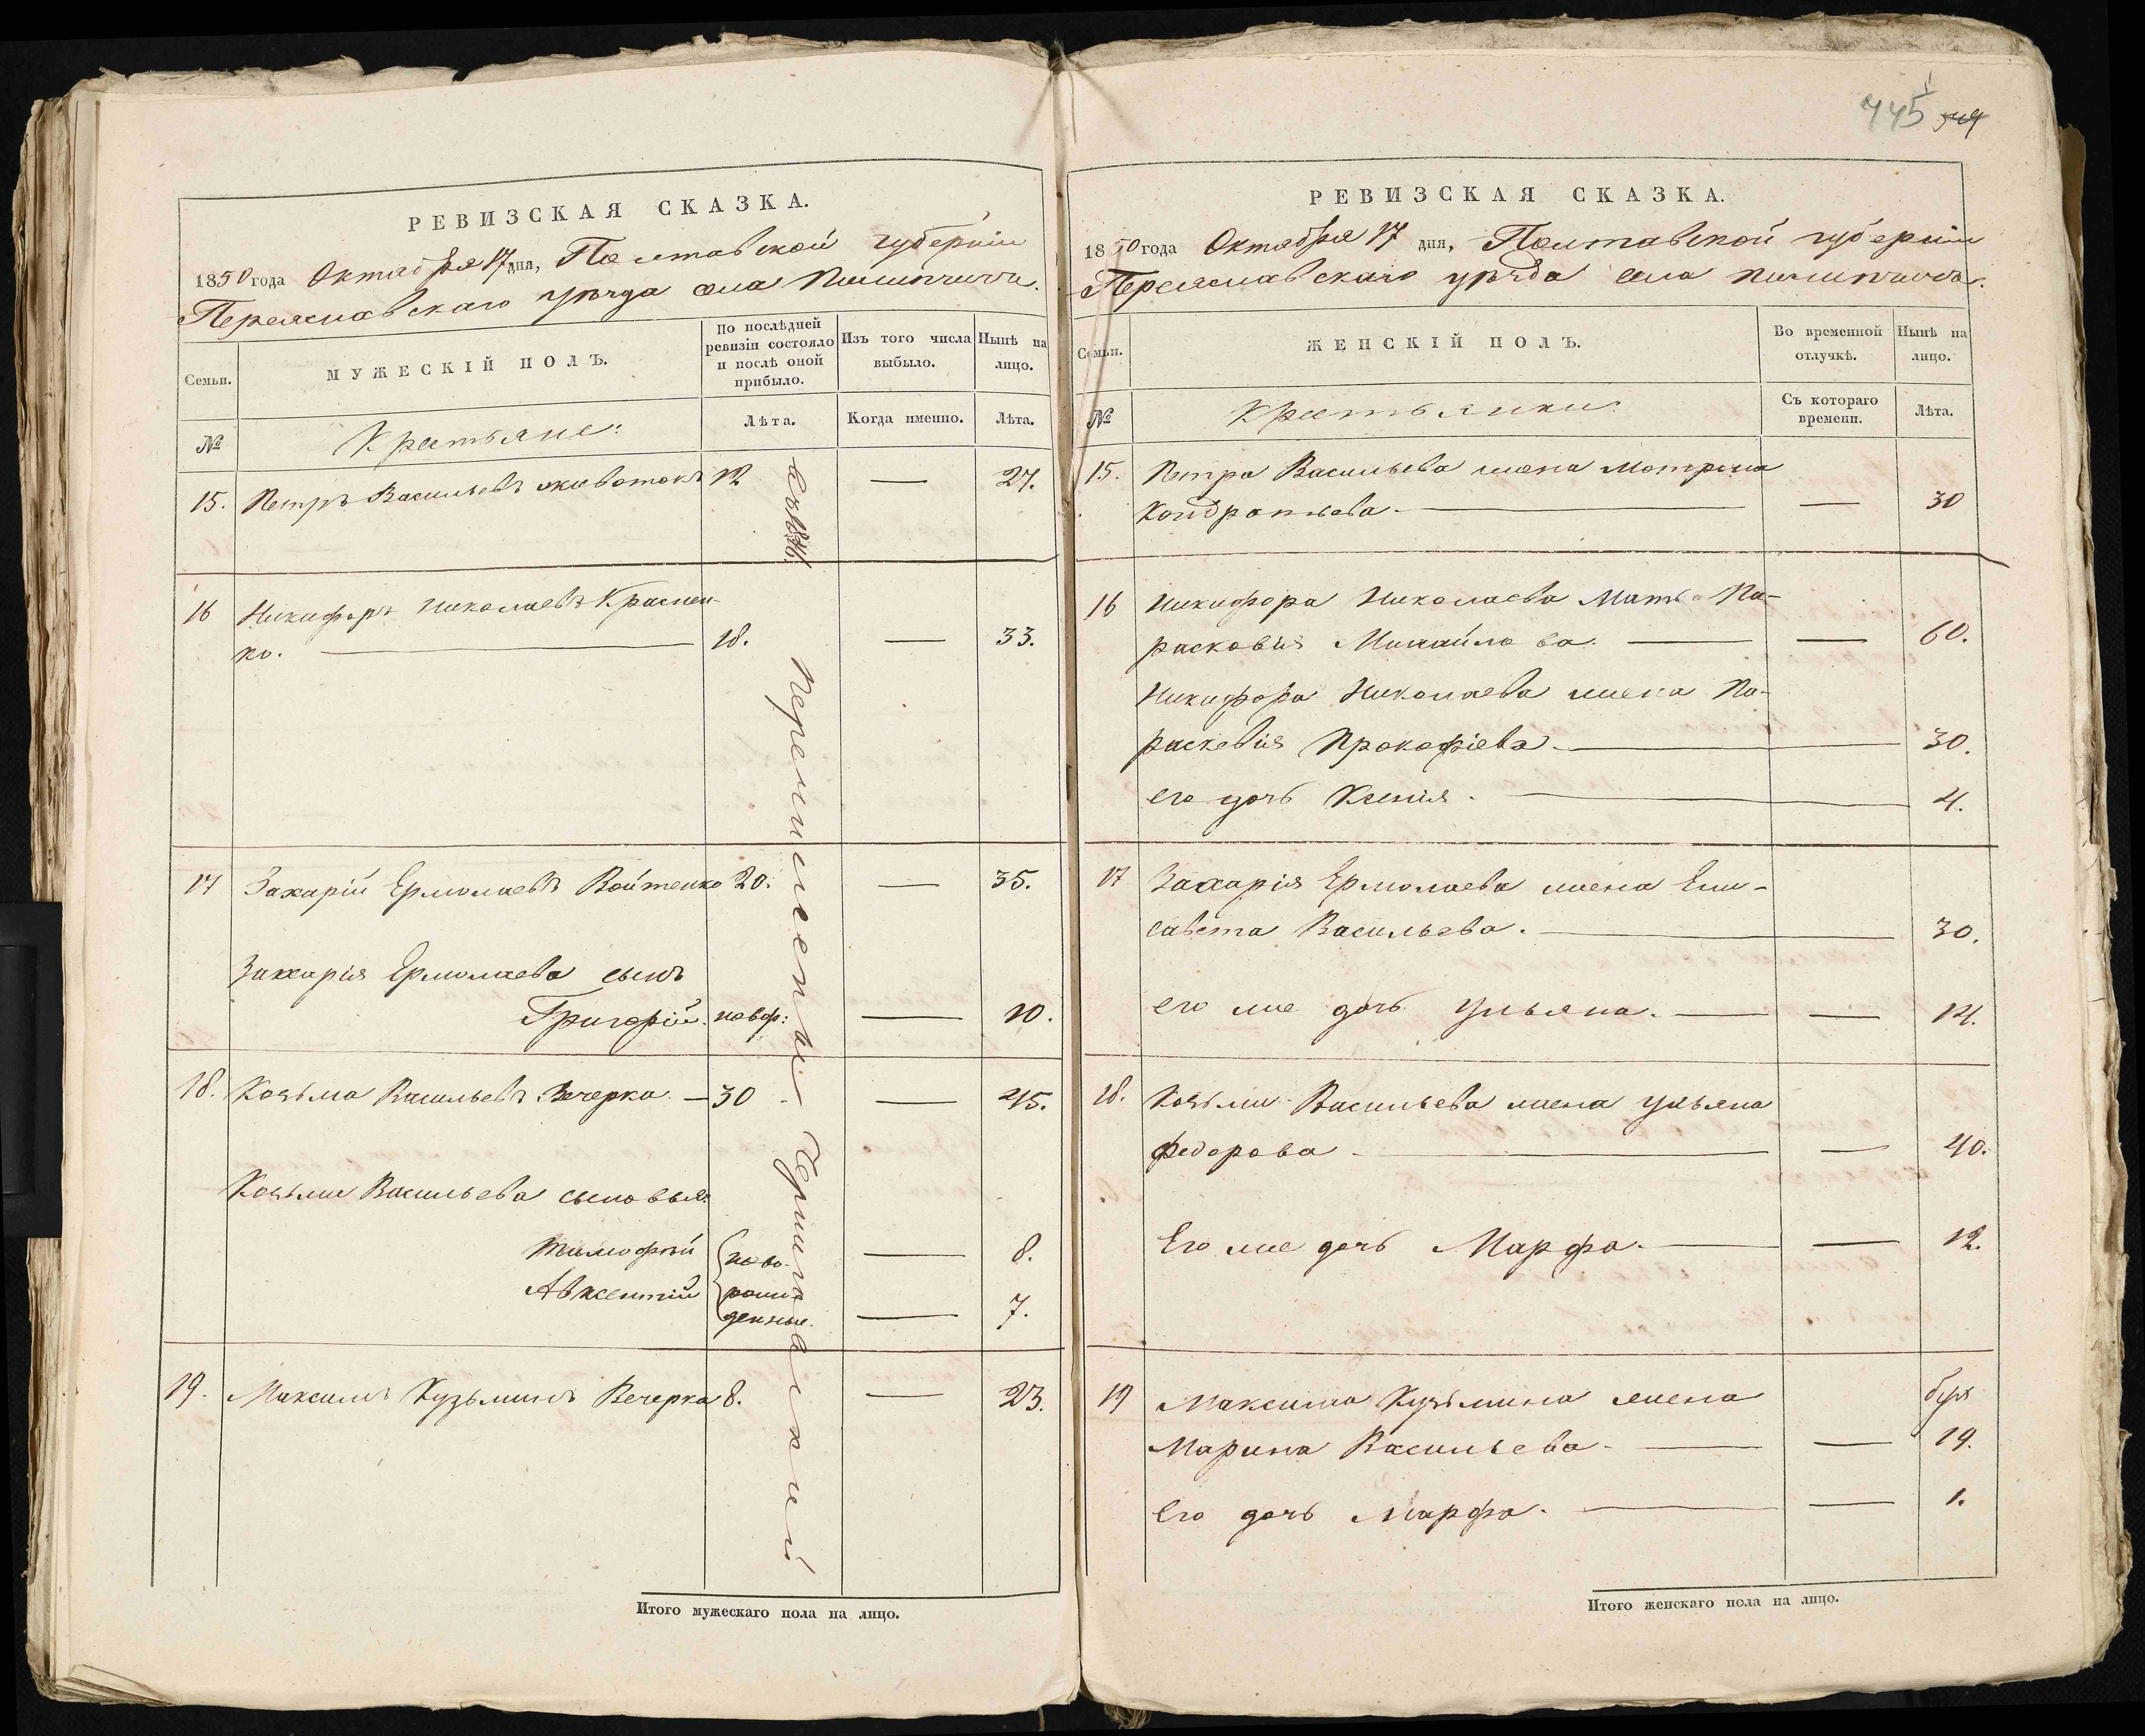 РЕВИЗСКАЯ СКАЗКА.
1850 года Октября 17 дня, Полтавской губернии
Переяславскаго уѣзда села
Семьи.
МУЖЕСКІЙ ПОЛЪ.
По послѣдней
ревизіи состояло
и послѣ оной
прибыло.
Изъ того числа
выбыло.
Нынѣ на
лицо.
№
Крестьяне:
Лѣта.
Когда именно.
Лѣта.
15. Петръ Васильевъ 12 — 27.
16 Никифоръ Николаевъ Краснен-
ко. 18. — 33.
17 Захарій Ермолаевъ Войтенко 20. — 35.
Захарія Ермолаева сынъ
Григорій. новор: — 10.
18. Козьма Васильевъ Вечерка — 30 — 45.
Козьмы Васильева сыновья:
Тимофѣй ново- — 8.
Авксентій рож-
денные. — 7.
19. Максимъ Кузьминъ Вечерка 8. — 23.
Итого мужескаго пола на лицо.
445
РЕВИЗСКАЯ СКАЗКА.
1850 года Октября 17 дня, Полтавской губерніи
Переяславскаго уѣзда села
Семьи.
ЖЕНСКІЙ ПОЛЪ.
Во временной
отлучкѣ.
Нынѣ на
лицо.
№
Крестьянки:
Съ котораго
времени.
Лѣта.
15. Петра Васильева жена Мотрона
Кондратьева. — — 30
16 Никифора Николаева Мать Па-
расковія Михайлова. — — 60.
Никифора Николаева жена Па-
раскевія Прокофіева — 30.
его дочь Ксенія. — 4.
17 Захарія Ермолаева жена Ели-
савета Васильева. — 30.
его же дочь Ульяна. — — 14.
18. Козьмы Васильева жена Ульяна
Федорова — — 40.
Его же дочь Марфа. — — 12.
19 Максима Кузьмина жена
Марина Васильева — — 19.
его дочь Марфа. — — 1.
Итого женскаго пола на лицо.